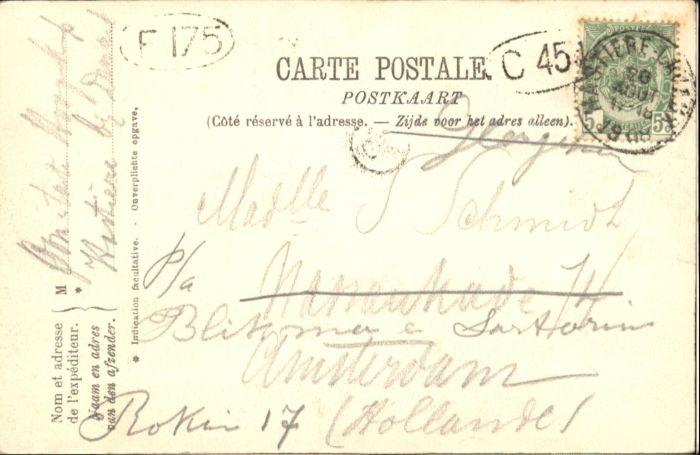 F 175
C 45
CARTE POSTALE.
POSTKAART
(Côté réservé à l'adresse. — Zijde voor het adres alleen).
HASTIERE-LAVAUX
20
AOUT
5 5
Madlle J Schmidt
Nassaukade 74
p/a Blikman e Sartorius
Amsterdam
Rokin 17 (Hollande)
Nom et adresse
de l'expéditeur.
Naam en adres
van den afzender.
M
* Indication facultative. - Onverplichte opgave.
Hastière